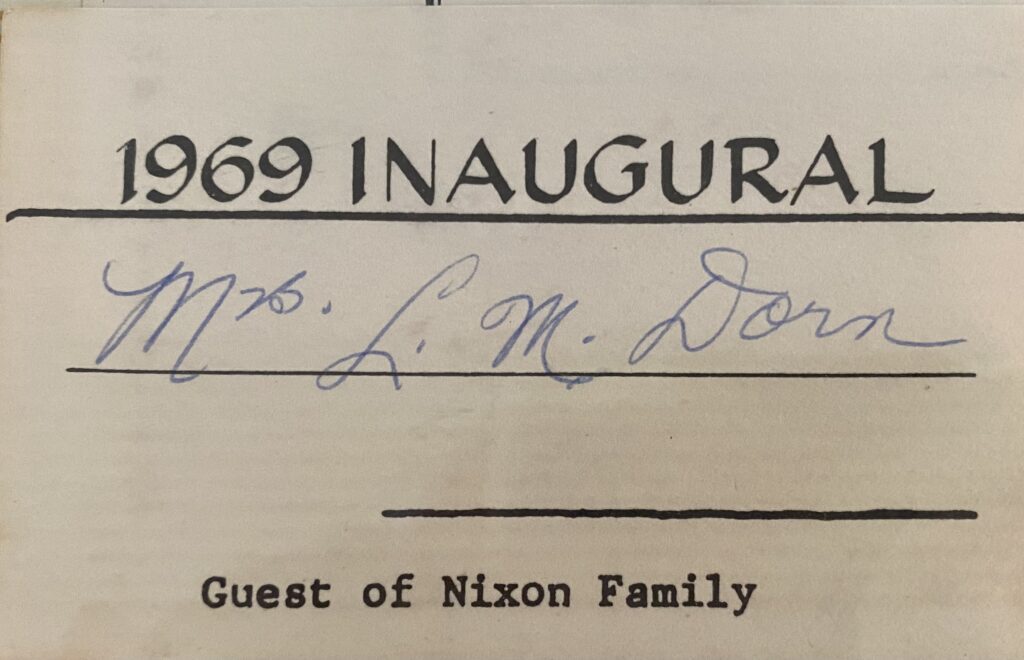 1969 INAUGURAL
Mrs. L. M. Dorn
Guest of Nixon Family